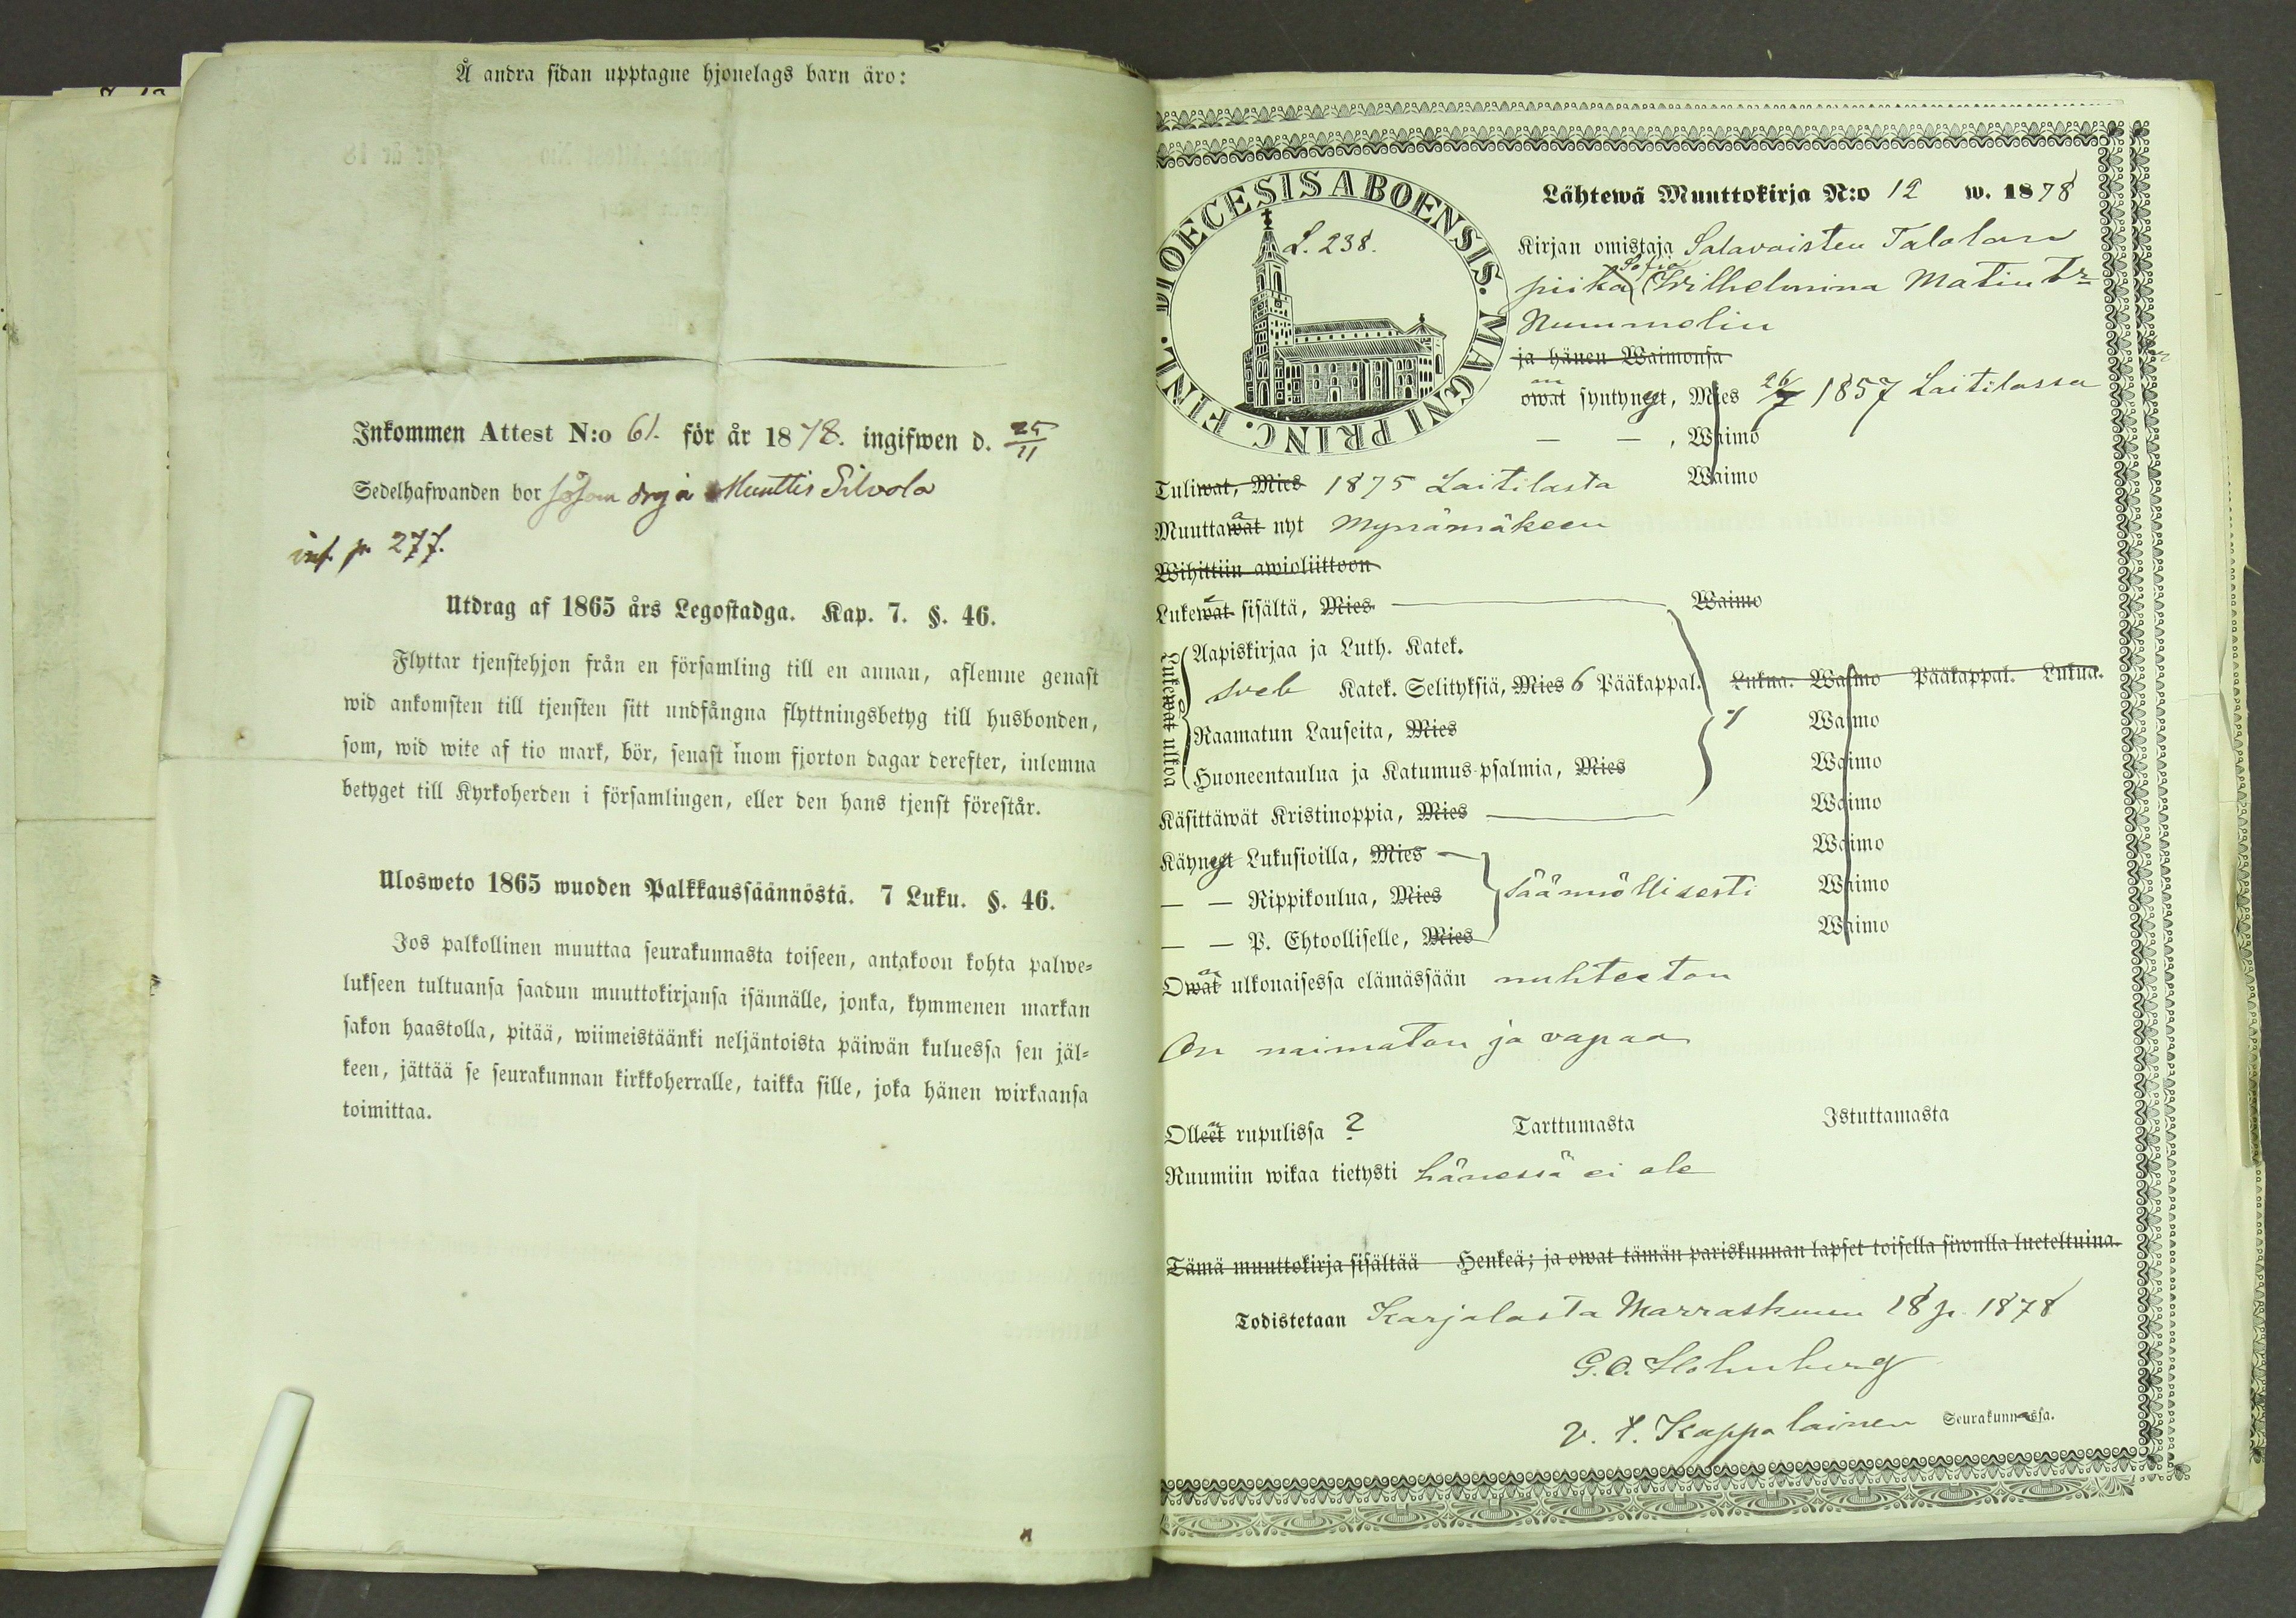 Å andra sidan upptagne hjonelags barn äro:
Inkommen Attest N:o 61. för år 1878. ingifwen d. 25/11
Sedelhafwanden bor såsom drg å Muuttis Silvola
inf. p. 277.
Utdrag af 1865 års Legostadga. Kap. 7. §. 46.
Flyttar tjenstehjon från en församling till en annan, aflemne genast
wid ankomsten till tjensten sitt undfångna flyttningsbetyg till husbonden,
som, wid wite af tio mark, bör, senast inom fjorton dagar derefter, inlemna
betyget till Kyrkoherden i församlingen, eller den hans tjenst förestår.
Ulosweto 1865 wuoden Palkkaussäännöstä. 7 Luku. §. 46.
Jos palkollinen muuttaa seurakunnasta toiseen, antakoon kohta palwe-
lukseen tultuansa saadun muuttokirjansa isännälle, jonka, kymmenen markan
sakon haastolla, pitää, wiimeistäänki neljäntoista päiwän kuluessa sen jäl-
keen, jättää se seurakunnan kirkkoherralle, taikka sille, joka hänen wirkaansa
toimittaa.
FINL. DIOECESIS ABOENSIS. MAGNI PRINC.
L. 238.
Lähtewä Muuttokirja N:o 12 w. 1878
Kirjan omistaja Salavaisten Talolan
piika Sofia Wilhelmina Matin tr
Nummelin
ja hänen Waimonsa
owat on syntynyt, Mies 26/7 1857 Laitilassa
— — , Waimo
Tuliwat, Mies 1875 Laitilasta Waimo
Muuttawat a nyt Mynämäkeen
Wihittiin awioliittoon
Lukewat sisältä, Mies Waimo
Lukewat ulkoa
Aapiskirjaa ja Luth. Katek.
Sveb Katek. Selityksiä, Mies 6 Pääkappal. Lukua. Waimo Pääkappal. Lukua.
Raamatun Lauseita, Mies Waimo
Huoneentaulua ja Katumus-psalmia, Mies Waimo
Käsittäwät Kristinoppia, Mies Waimo
Käynyt Lukusioilla, Mies Waimo
— — Rippikoulua, Mies Säännöllisesti Waimo
— — P. Ehtoolliselle, Mies Waimo
Owat on ulkonaisessa elämässään nuhteeton
On naimaton ja vapaa
Olleet rupulissa ? Tarttumasta Istuttamasta
Ruumiin wikaa tietysti hänessä ei ole
Tämä muuttokirja sisältää Henkeä; ja owat tämän pariskunnan lapset toisella siwulla lueteltuina.
Todistetaan Karjalasta Marraskuun 18 p. 1878
G. O. Holmberg
v. t. Kappalainen Seurakunnassa.